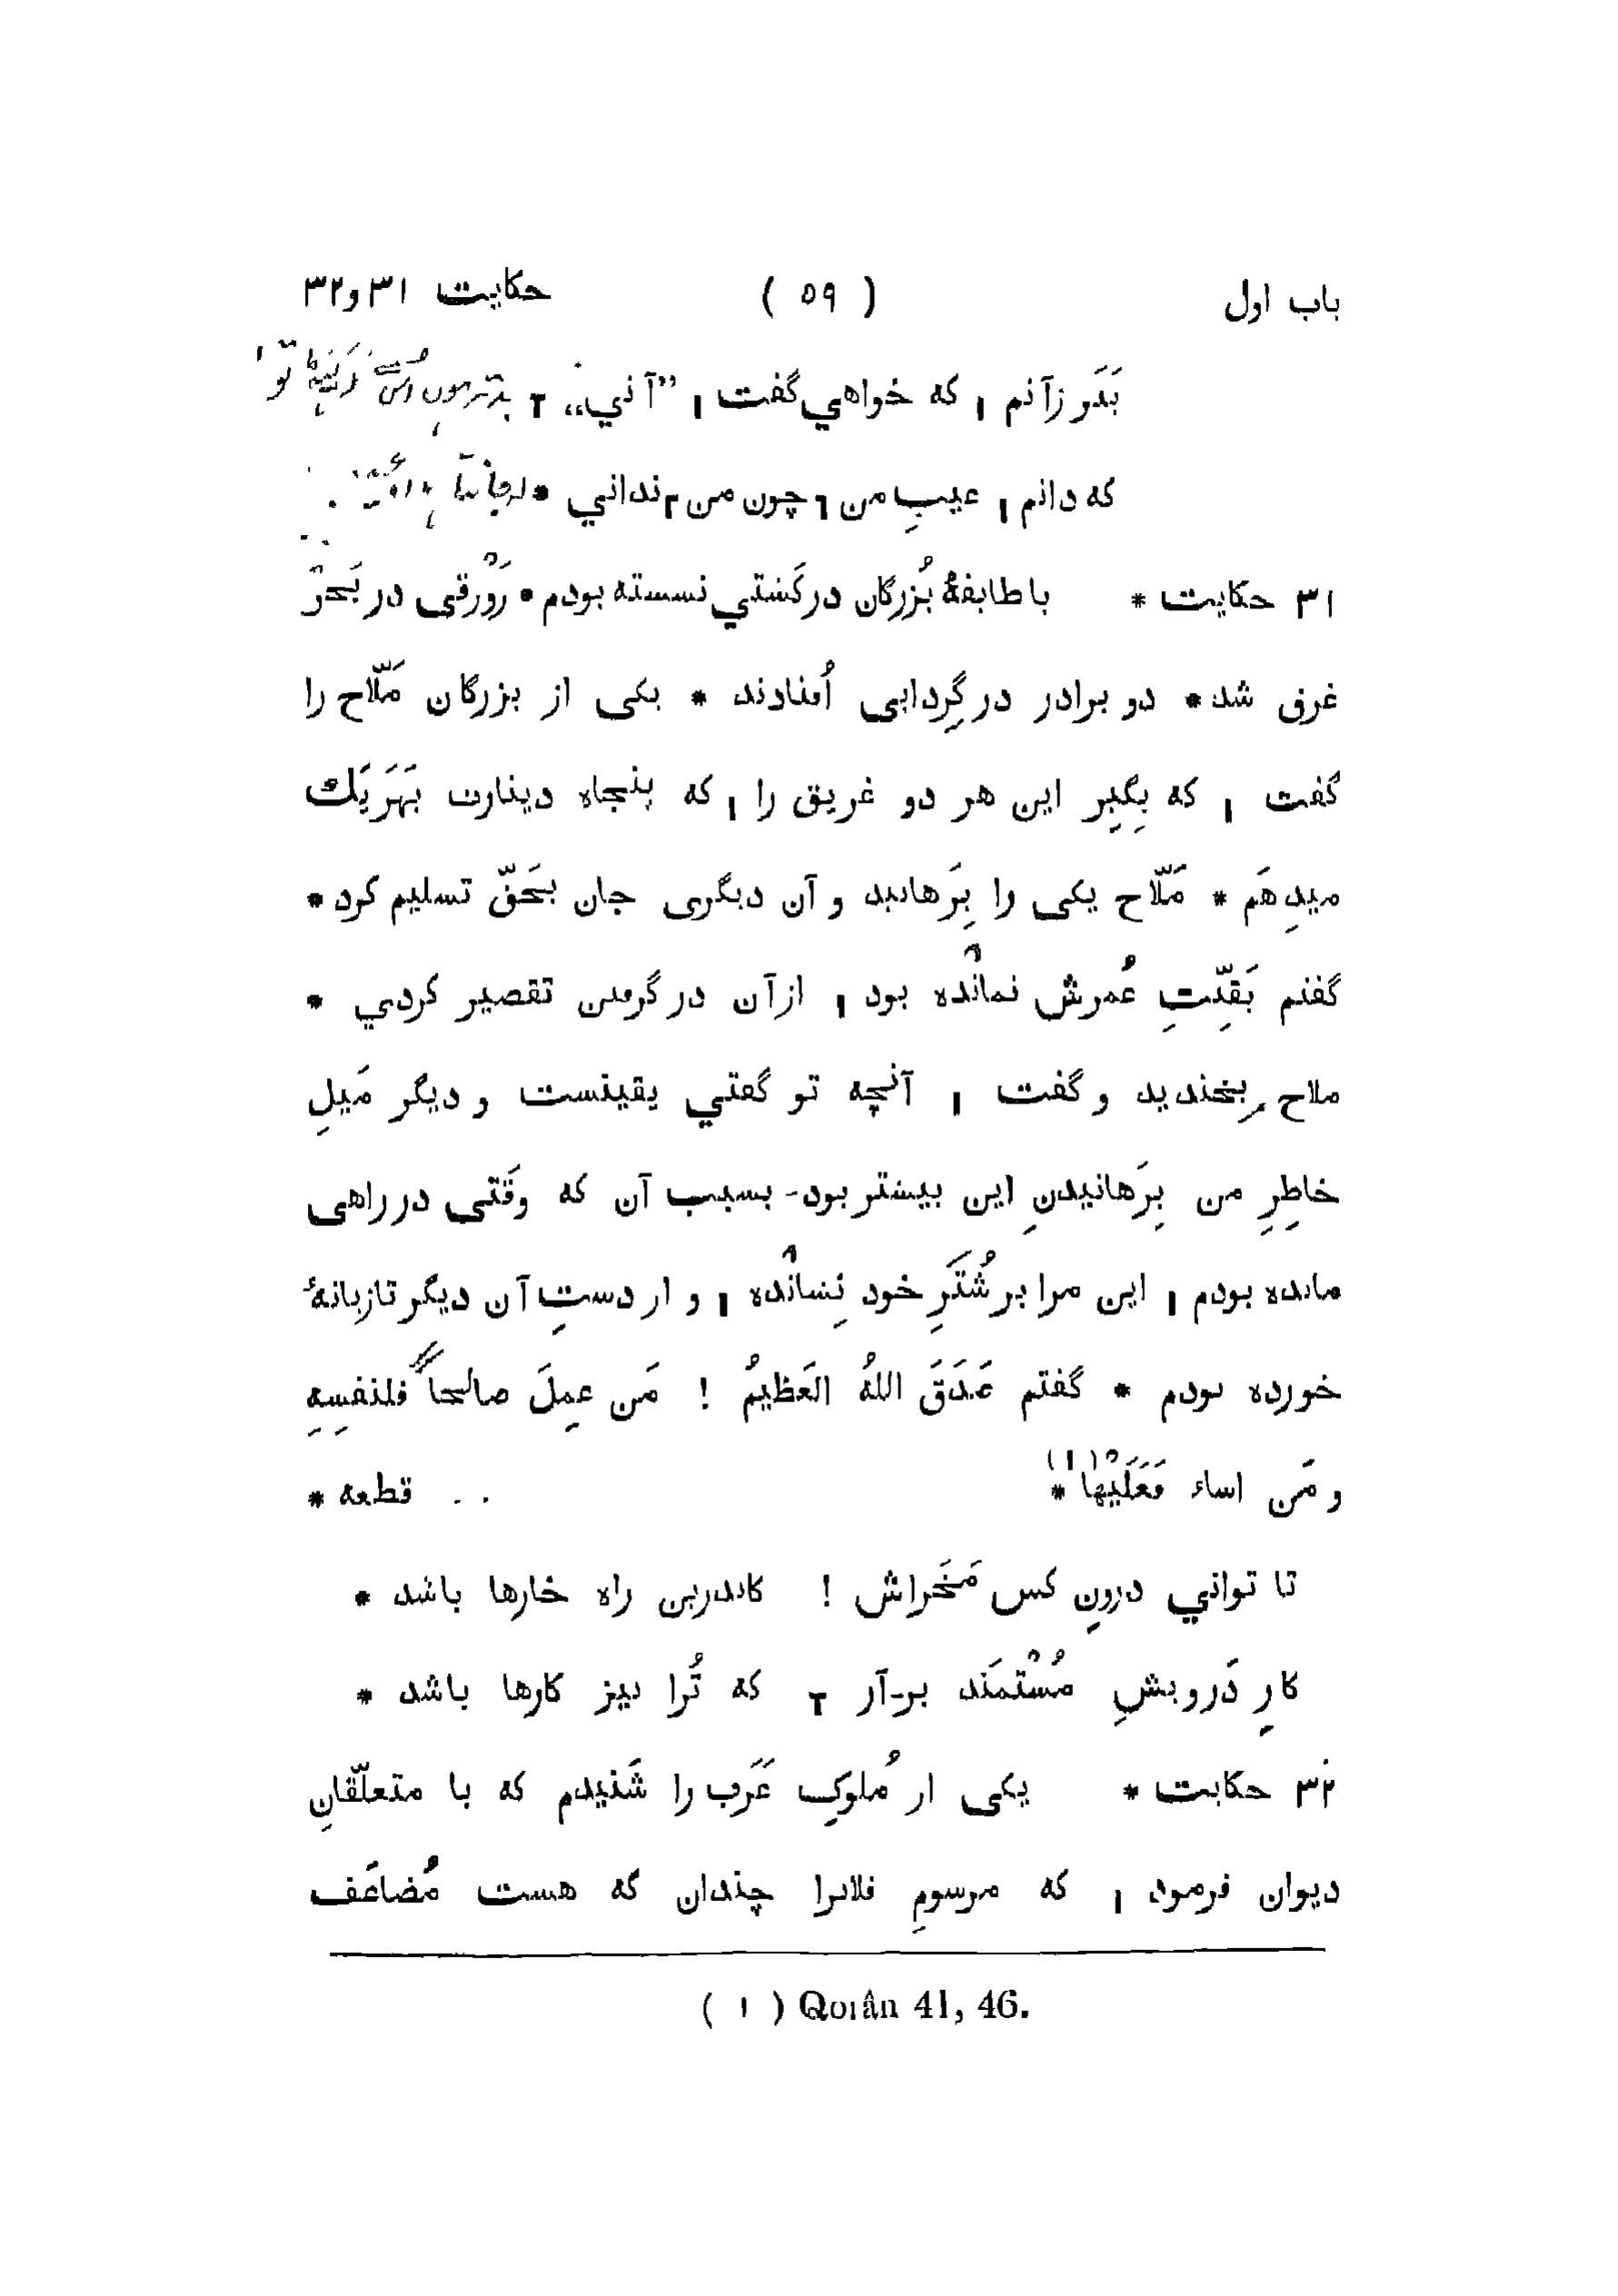 باب اول ( ٥٩ ) حكايت ٣١ و ٣٢
بَتَر زآنم که خواهي گفت ”آني“
که دانم عيبِ من چون من نداني *
٣١ حكايت * با طايفهٔ بُزرگان در كَشتي نشسته بودم * زَوْرقى در بَحر
غرق شد * دو برادر در گِردابى اُفتادند * يكى از بزرگان مَلّاح را
گفت که بِگِير اين هر دو غريق را که پنجاه دينارت بَهَر يَك
ميدِهَم * مَلّاح يكى را بِرَهانيد و آن ديگرى جان بحَقّ تسليم كرد *
گفتم بَقِيّتِ عُمرش نمانْده بود ازآن در گرفتن تقصير كردي *
ملاح بِخنديد و گفت آنچه تو گفتي يقينست و ديگر مَيلِ
خاطِرِ من بِرَهانيدنِ اين بيشتر بود - بسبب آن که وقَتى در راهى
مانده بودم اين مرا بر شُتَرِ خود نِشانْده و از دستِ آن ديگر تازيانهٔ
خورده بودم * گفتم صَدَقَ اللهُ العَظيمُ ! مَن عمِلَ صالحاً فلنفسِهِ
و مَن اساء فَعَلَيْها (١) * قطعه *
تا تواني درونِ كس مَخَراش ! كاندرين راه خارها باشد *
كارِ دَرويشِ مُسْتمَند بر-آر که تُرا نيز كارها باشد *
٣٢ حكايت * يكى از مُلوكِ عَرَب را شَنيدم که با متعلّقانِ
ديوان فرمود که مرسومِ فلانرا چندان که هست مُضاعَف
( ١ ) Qorân 41, 46.